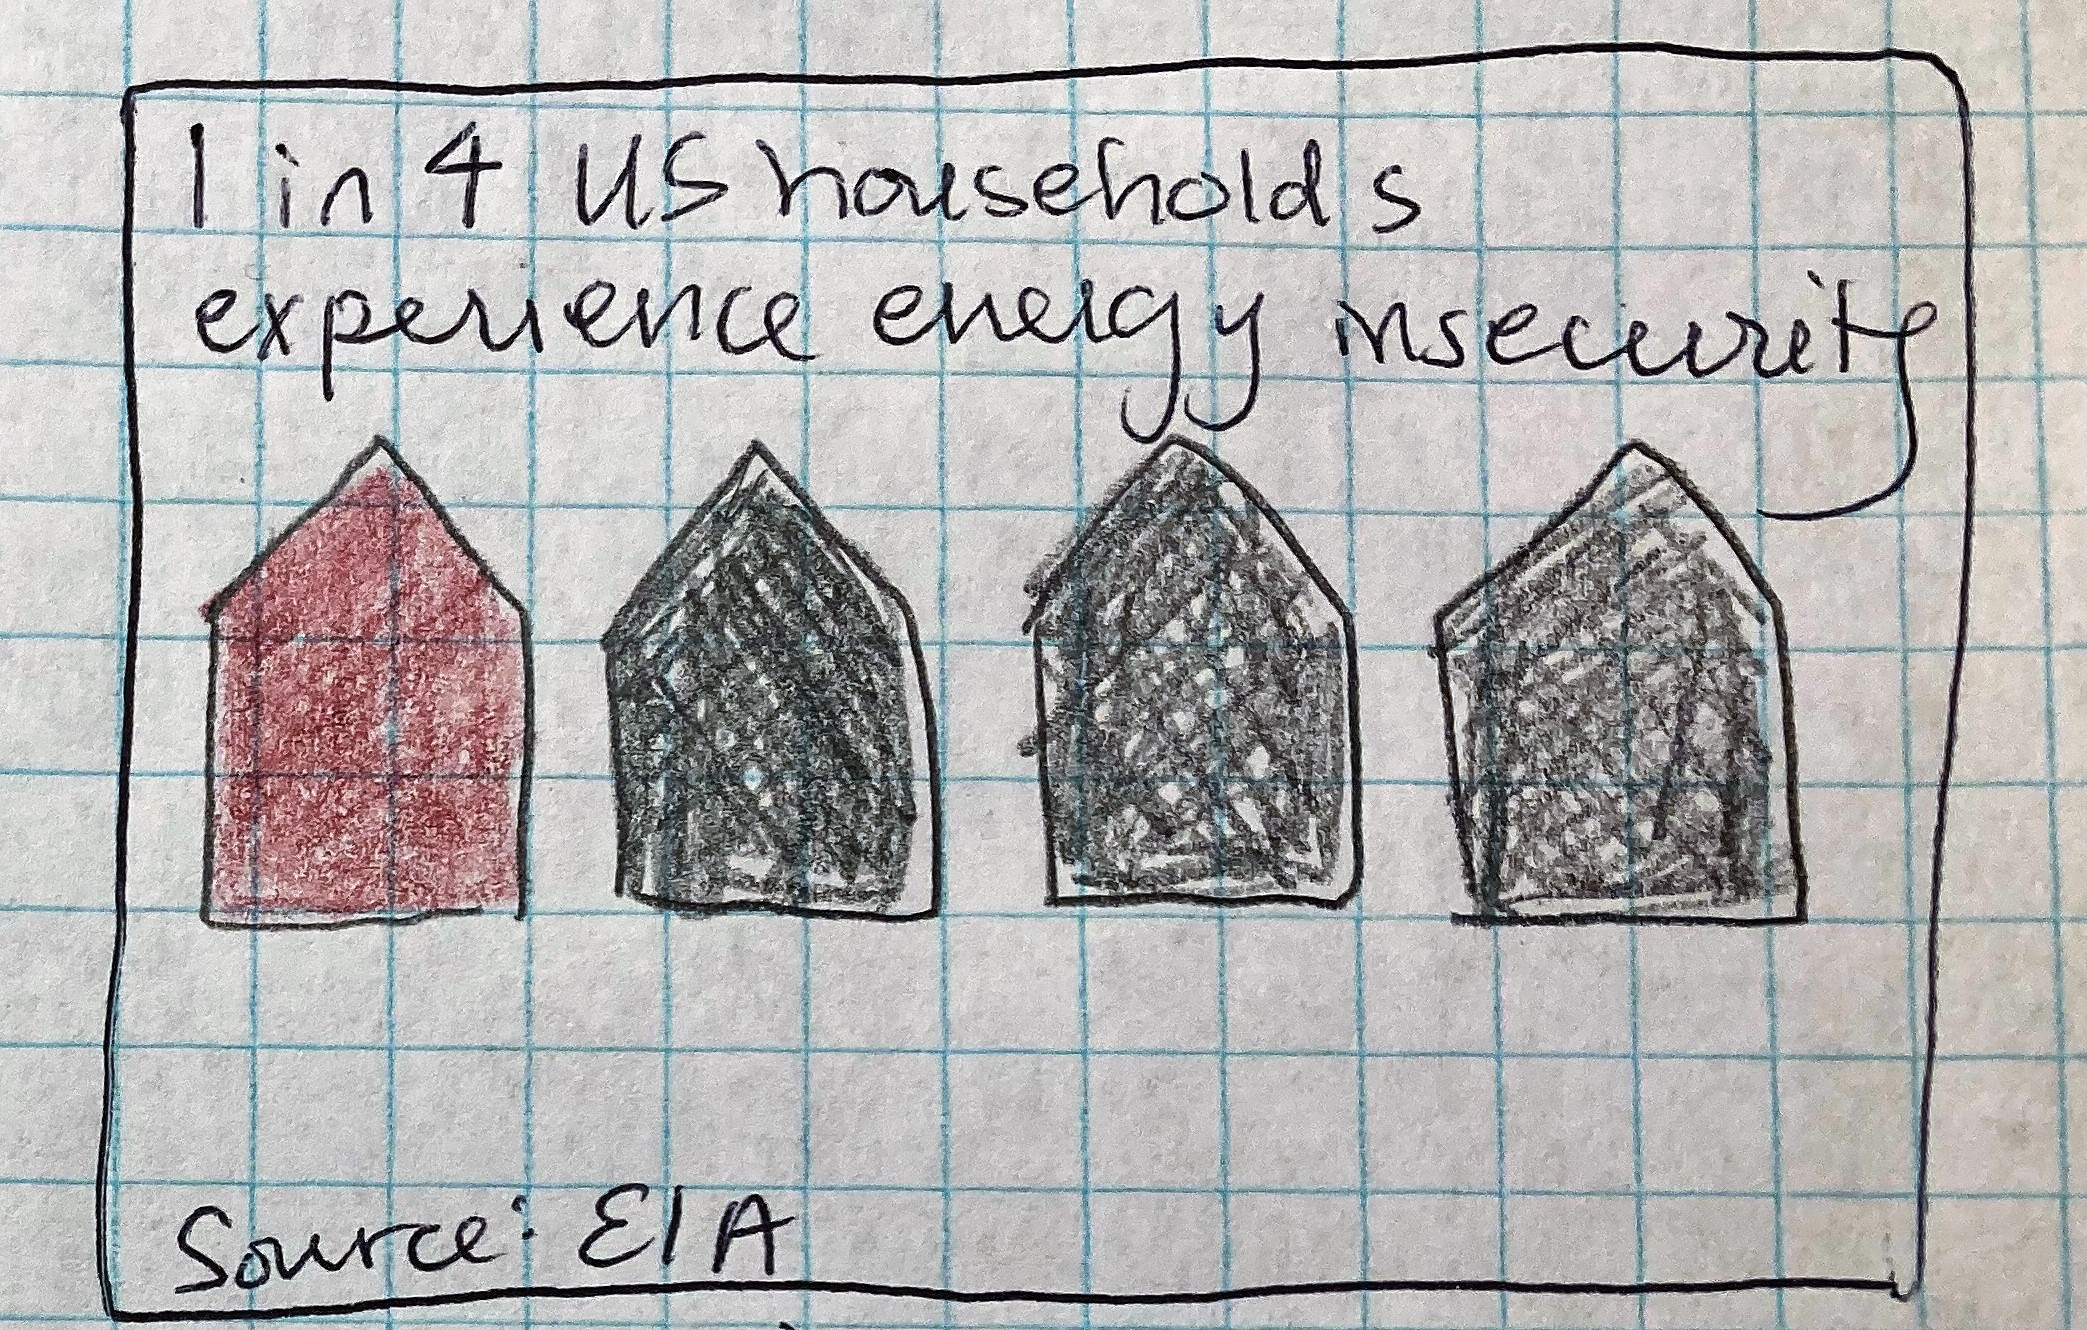 1 in 4 US households
experience energy insecurity
Source: EIA